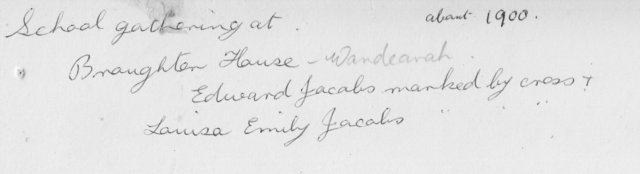 School gathering at. about 1900.
Broughton House - Wandearah.
Edward Jacobs marked by cross +
Louisa Emily Jacobs " "